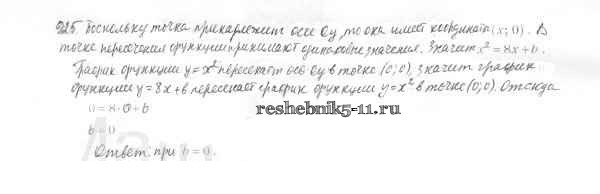 925. Поскольку точка принадлежит оси Oy, то она имеет координаты (x; 0). В
точке пересечения функции принимают одинаковые значения. Значит x² = 8x + b.
График функции y = x² пересекает ось Oy в точке (0; 0), значит график
функции y = 8x + b пересекает график функции y = x² в точке (0; 0). Отсюда
0 = 8 · 0 + b
reshebnik5-11.ru
b = 0
Ответ: при b = 0.